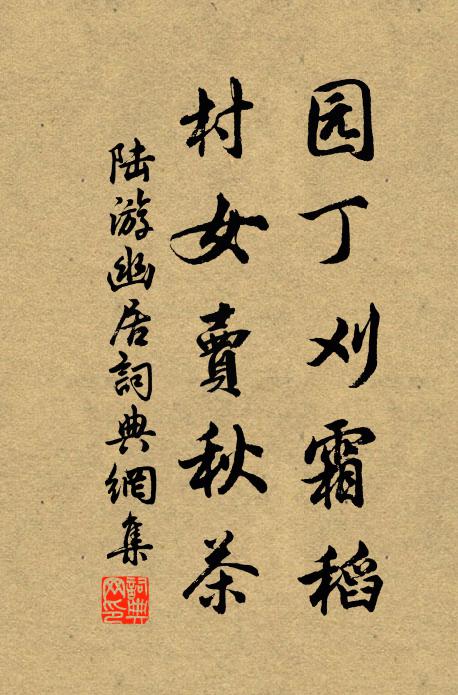 园丁刈霜稻
村女賣秋茶
陆游幽居詞典網集
詞典
网印